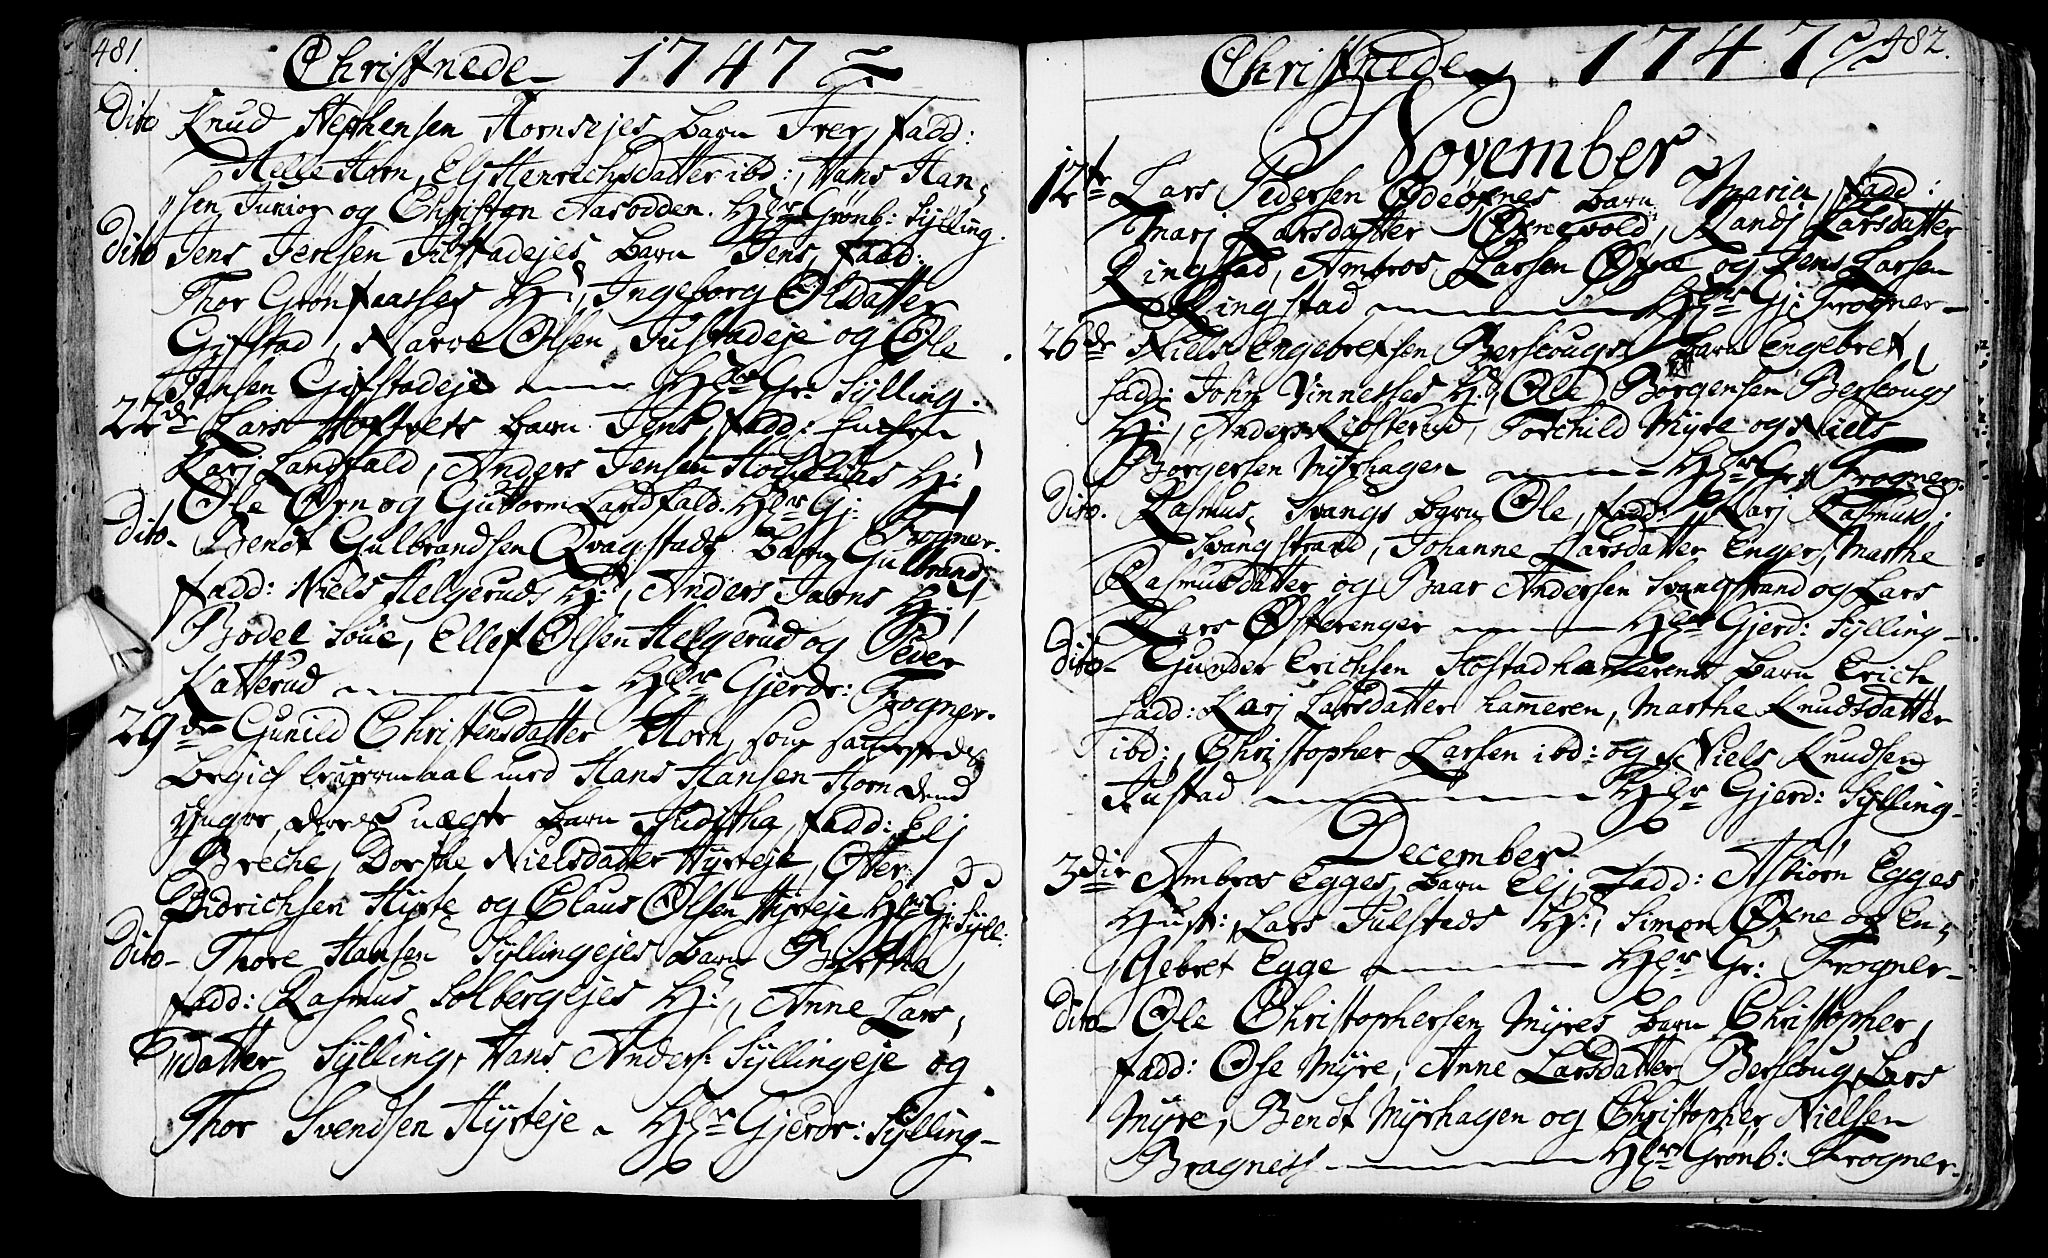 481.
Christnede 1747
Dito Knud Stephensen Hornsejes barn Iver, fadd:
Helle Horn, Elj Henrichsdatter ibd:, Hans Han,
sen Junior og Christen Aarodden. Hr Grønb: Sylling.
Dito Jens Jensen Justadejes barn Jens, fadd:
Thor Grønsaasses H:, Ingeborg Olsdatter
Gifstad, Narve Olsen Justadeje og Ole
Jensen Gifstadeje Hr Gr: Sylling.
22de Lars Hoftvets barn Jens, fadd:
Karj Landfald, Anders Jensen H:
Ole Ørn og Guttorm Landfald: Hr Gj: Frogner.
Dito- Bendt Gulbrandsen Qvagstads barn Gulbrand,
fadd: Niels Helgeruds H:, Anders Jarens H:
Bodel Loue, Ellef Olsen Helgerud og Peder
Katterud Hr Gjerdr: Frogner.
29de Gunild Christensdatter Horn, som
begick leyermaal med Hans Hansen Horn dend
yngre deres uægte barn Juditha, fadd: Elj
Breche, Dorthe Nielsdatter Hyrteje, Otter
Didrichsen Hyrte og Claus Olsen Hyrteje Hr Gj: Syll:
Dito- Thore Hansen Syllingejes barn Birthe,
fadd: Rasmus Solbergejes H:, Anne Lars,
datter Sylling, Hans Anders: Syllingeje og
Thor Svendsen Hyrteje Hr Gjerdr: Sylling-
482.
Christnede 1747
November
12te Lars Pedersen Ødeøxnes barn Maria, fadd:
Marj Larsdatter Øxnevold, Randj Larsdatter
Ringstad, Ambros Larsen Øxne og Jens Larsen
Ringstad Hr Gj: Frogner-
26de Niels Engebretsen Berscougs barn Engebret,
fadd: John Vinnesses H:, Ole Borgersen Berscougs
H:, Anders Kibsterud, Torchild Myre og Niels
Børgersen Myrhagen Hr Gr: Frogner.
Dito. Rasmus Svangs barn Ole, fadd: Karj Rasmusd:
Svangstrand, Johanne Larsdatter Enger, Marthe
Rasmusdatter og Baar Andersen Svangstrand og Lars
Lars Østerenger Hr Gjerd: Sylling-
Dito- Gunder Erichsen Høstadhammerens barn Erich
fadd: Karj Larsdatter hameren, Marthe Knudsdatter
ibd:, Christopher Larsen ibd: og Niels Knudsen
Justad Hr Gjerd: Sylling-
December
3die Ambros Egges barn Elj, Fadd: Asbiørn Egges
Hustr:, Lars Julstads H:, Simon Øxne og En,
gebret Egge Hr Gr: Frogner-
Dito- Ole Christophersen Myres barn Christopher,
fadd: Ose Myre, Anne Larsdatter Berscoug, Lars
Myre, Bendt Myrhagen og Christopher Nielsen
Bragness Hr Grønb: Frogner-